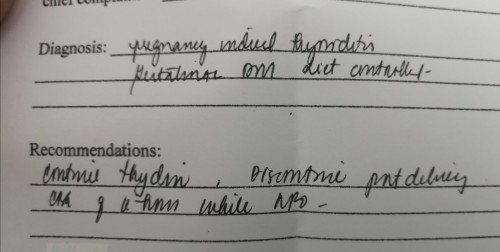 chief compla
Diagnosis: pregnancy induced thyroiditis
gestational DM diet controlled -
Recommendations:
continue , Discontinue post delivery
q while NPO -